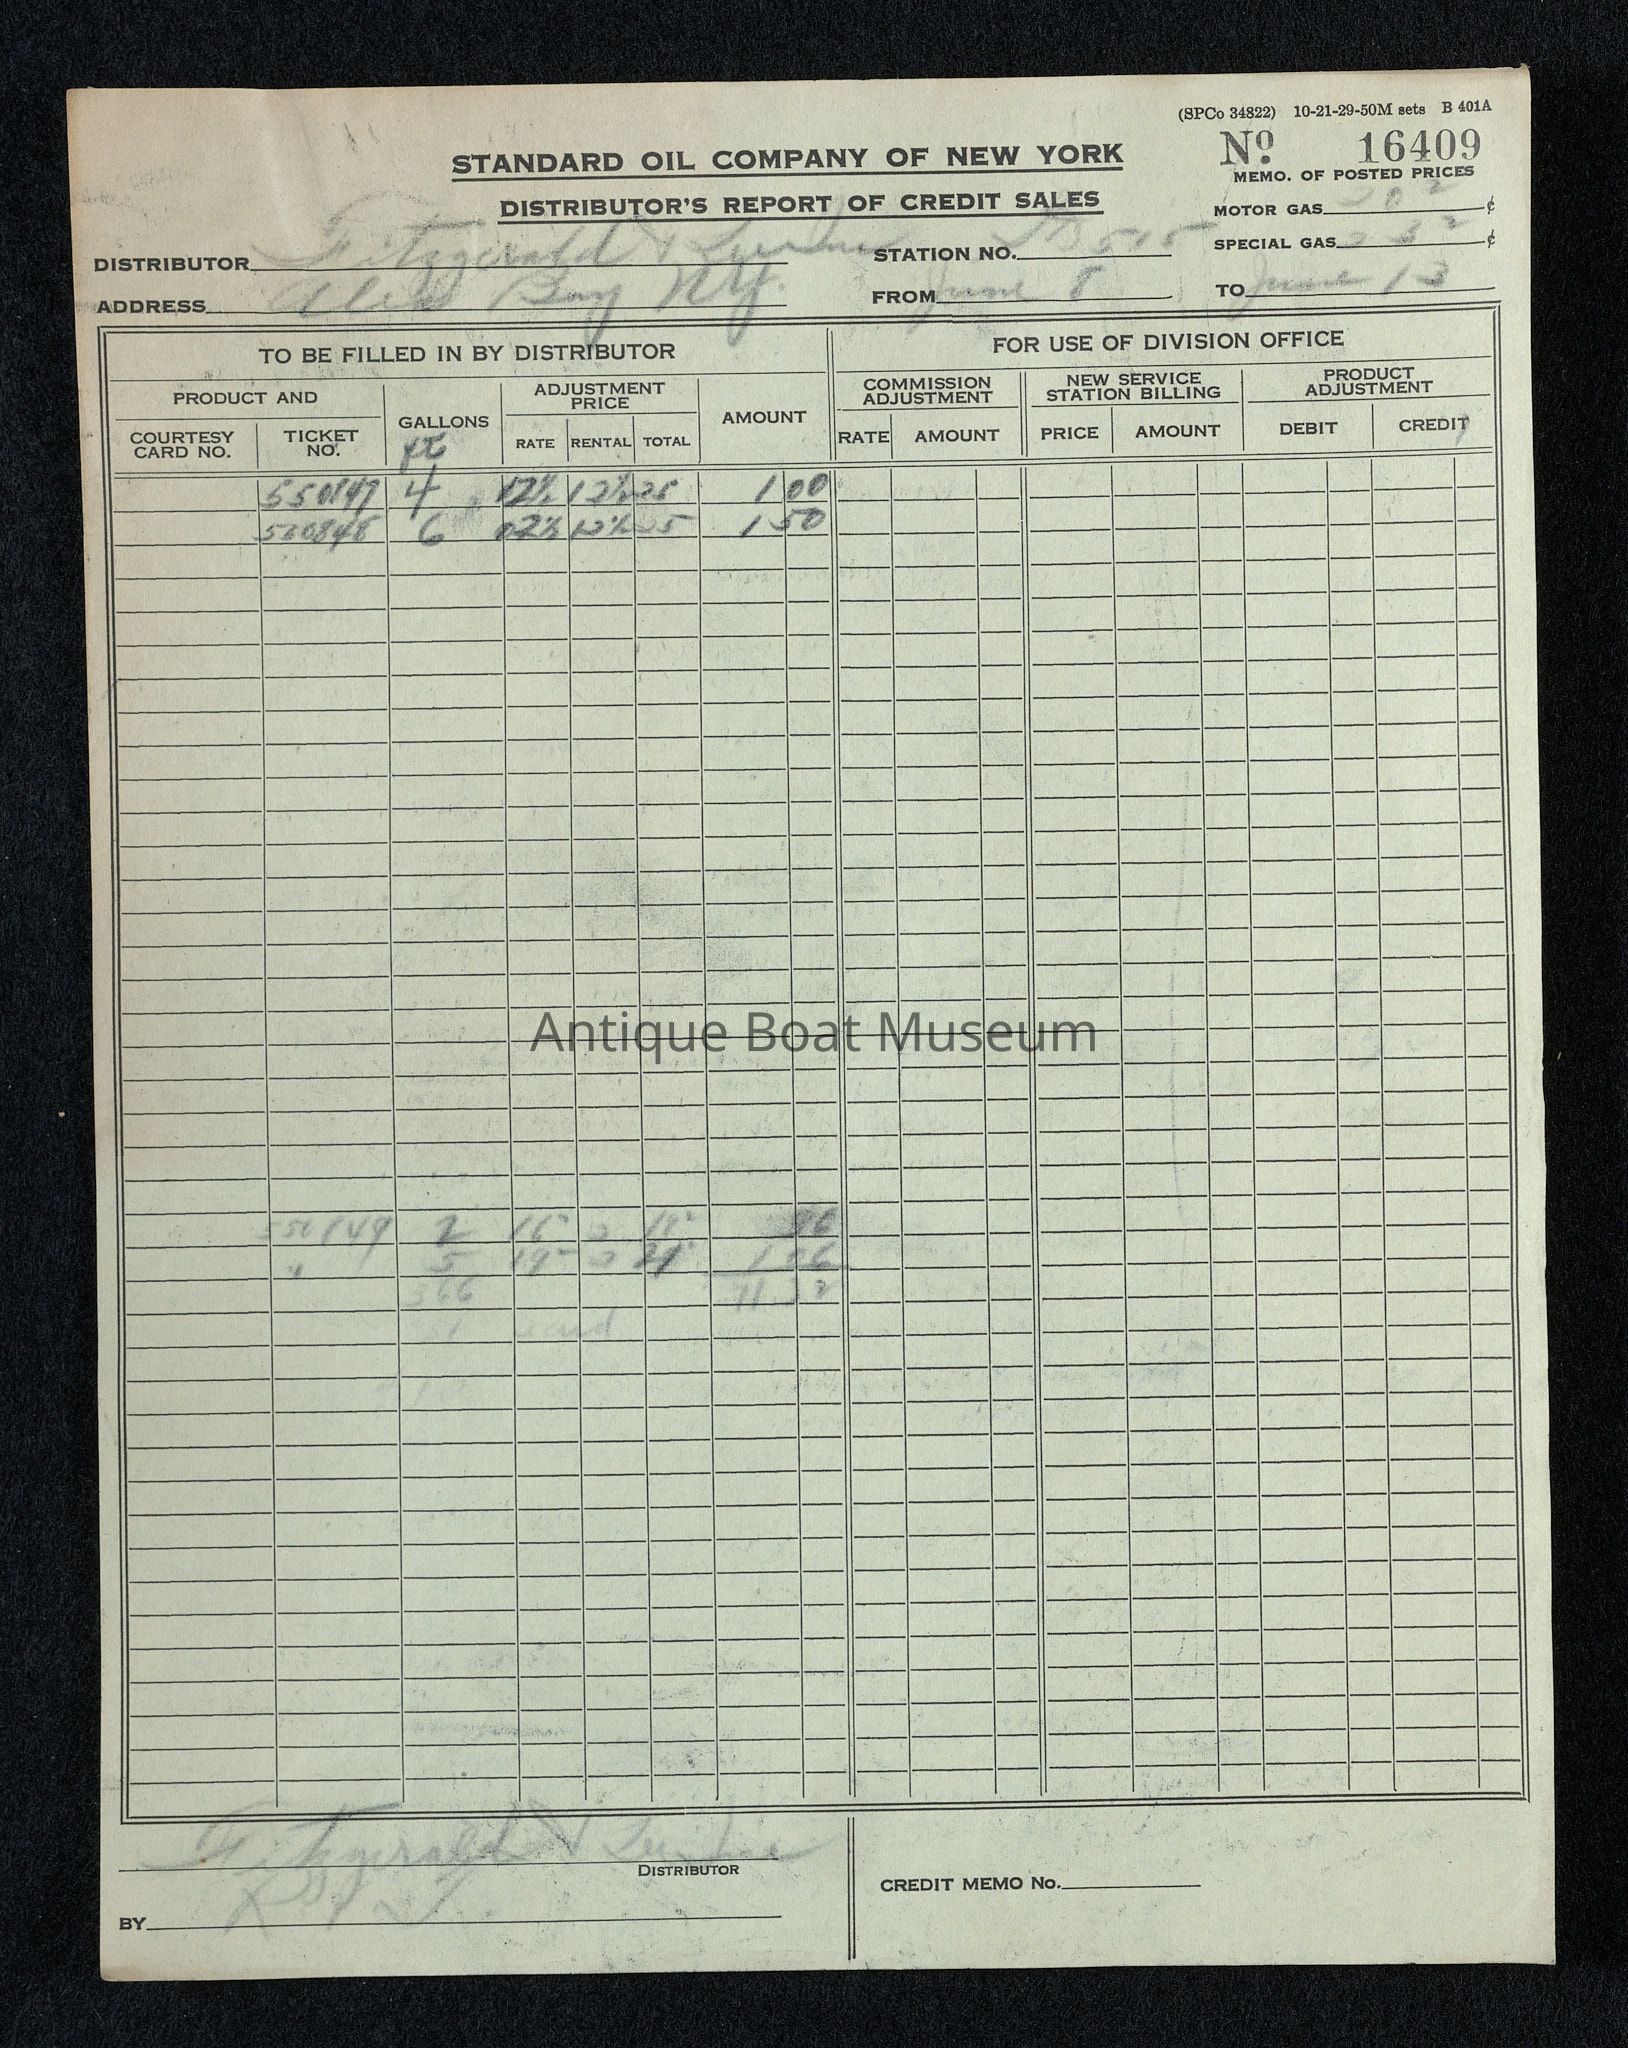 (SPCo 34822) 10-21-29-50M sets B 401A
STANDARD OIL COMPANY OF NEW YORK
No. 16409
MEMO. OF POSTED PRICES
DISTRIBUTOR'S REPORT OF CREDIT SALES
MOTOR GAS 20 2 ¢
DISTRIBUTOR Fitzgerald &
STATION NO. 515
SPECIAL GAS 23 2 ¢
ADDRESS Alex Bay N.Y.
FROM June 8
TO June 13
TO BE FILLED IN BY DISTRIBUTOR
FOR USE OF DIVISION OFFICE
PRODUCT AND
GALLONS
ADJUSTMENT PRICE
AMOUNT
COMMISSION ADJUSTMENT
NEW SERVICE STATION BILLING
PRODUCT ADJUSTMENT
COURTESY CARD NO.
TICKET NO.
RATE RENTAL TOTAL
RATE AMOUNT
PRICE AMOUNT
DEBIT CREDIT
4 12½ 12½ 25 1 00
6 12½ 25 1 50
Antique Boat Museum
2
5 1
366
Fitzgerald &
DISTRIBUTOR
CREDIT MEMO No.
BY